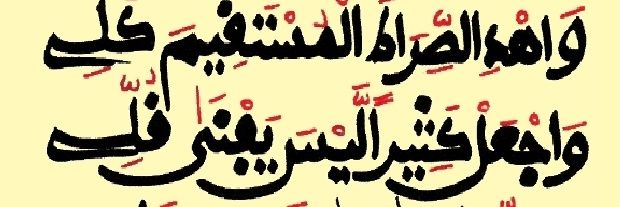 وَاهْدِ الصِّرَاطَ الْمُسْتَقِيمَ كُلِّي
وَاجْعَلْ كَثِيرًا لَّيْسَ يَفْنَى قُلِّي